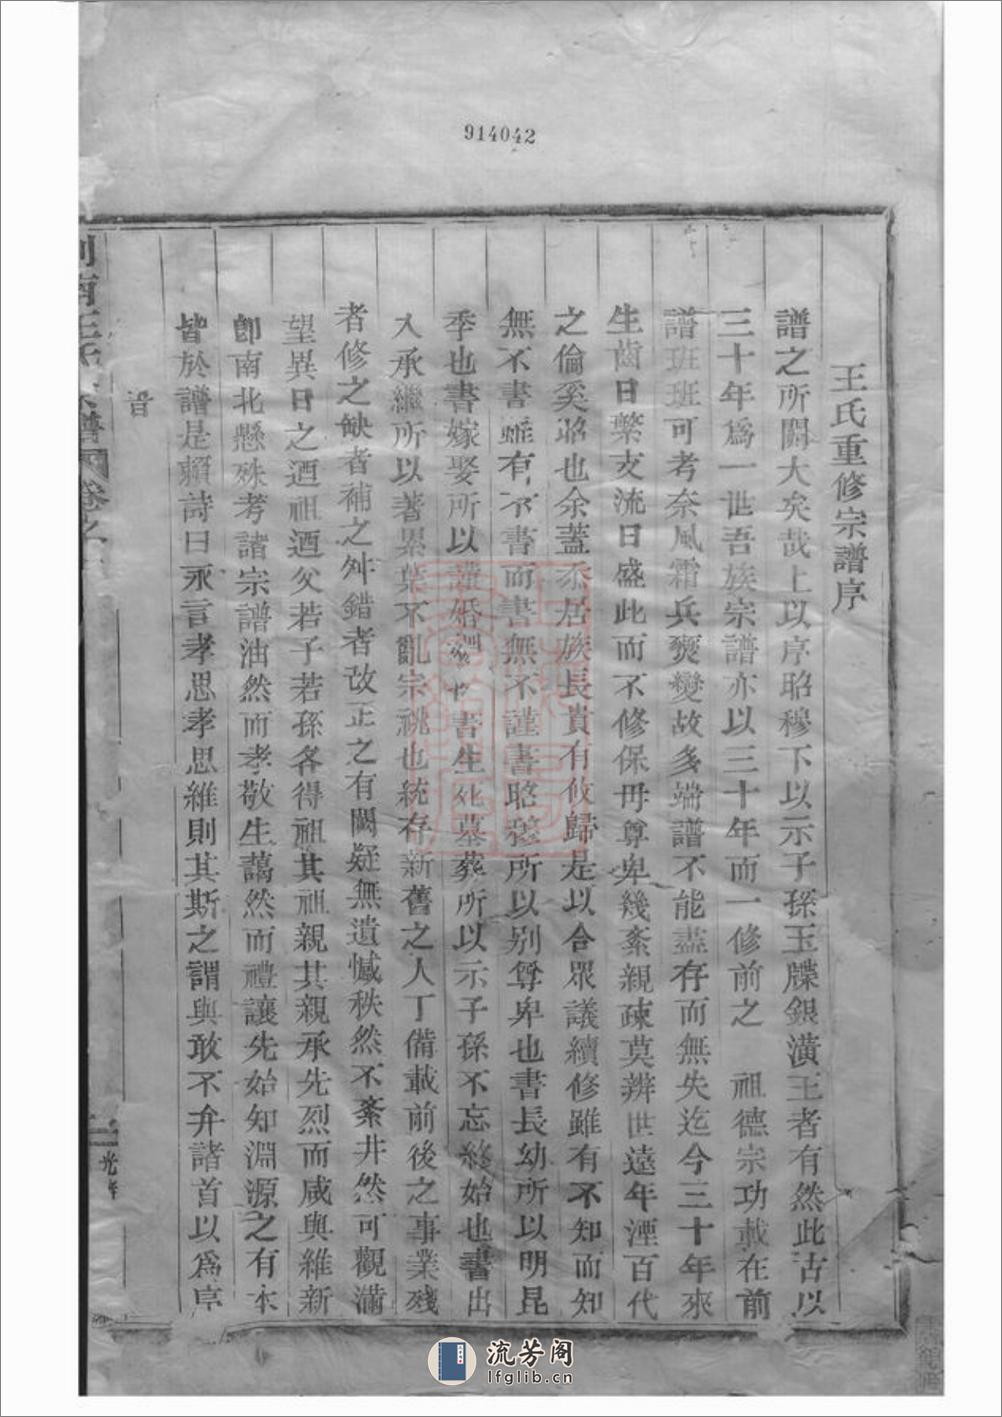 914042
王氏重修宗譜序
譜之所關大矣哉上以序昭穆下以示子孫玉牒銀潢王者有然此古以
三十年爲一世吾族宗譜亦以三十年而一修前之 祖德宗功載在前
譜班班可考奈風霜兵燹變故多端譜不能盡存而無失迄今三十年來
生齒日繁支流日盛此而不修保毋尊卑幾紊親疎莫辨世遠年湮百代
之倫奚敢也余蓋忝居族長責有攸歸是以合眾議續修雖有不知而知
無不書雖有不書而書無不謹書昭穆所以别尊卑也書長幼所以明昆
季也書嫁娶所以謹婚姻也書生死墓葬所以示子孫不忘終始也書出
入承繼所以著累葉不亂宗祧也統存新舊之人丁備載前後之事業殘
者修之缺者補之舛錯者改正之有闕疑無遺憾秩然不紊井然可觀滿
望異日之迺祖迺父若子若孫各得祖其祖親其親承先烈而咸與維新
卽南北懸殊考諸宗譜油然而孝敬生藹然而禮讓先始知淵源之有本
皆於譜是賴詩曰永言孝思孝思維則其斯之謂與敢不弁諸首以爲序
南王氏宗譜 卷之
流芳阁
lfglib.cn